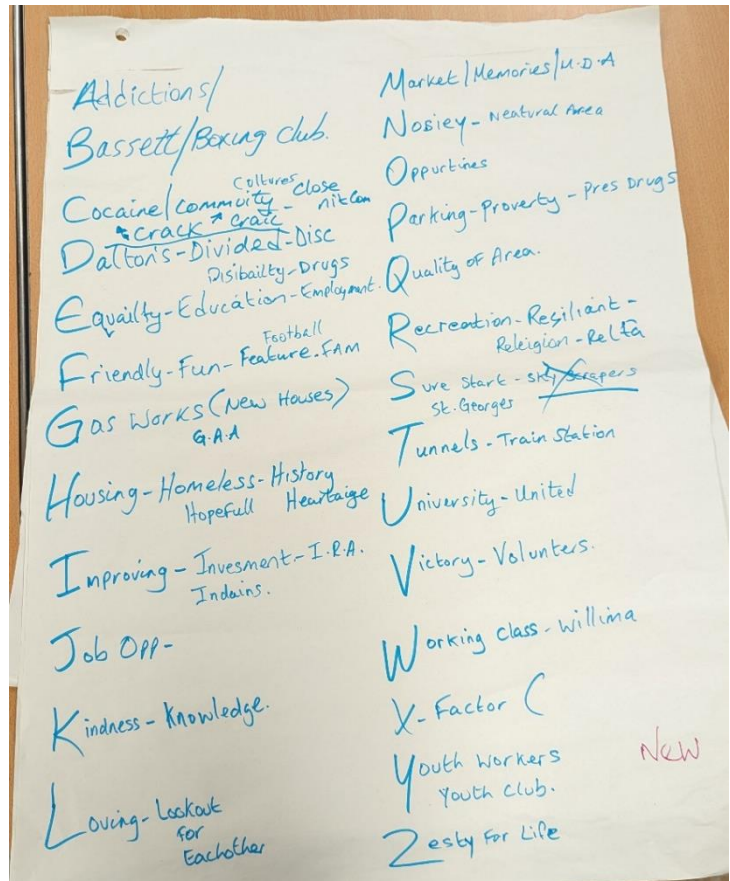 Addictions/
Bassett/Boxing Club.
Cultures
Cocaine/commuity - close nitcom
crack craic
Dalton's - Divided - Disc
Disibailty - Drugs
Equailty - Education - Employment.
Football
Friendly - Fun - Feature. FAM
Gas Works (New Houses)
G.A.A
Housing - Homeless - History
Hopefull Heartaige
Improving - Invesment - I.R.A.
Indains.
Job Opp -
Kindness - Knowledge.
Loving - Lookout
for
Eachother
Market/Memories/M.D.A
Nosiey - Neatural Area
Oppurtines
Parking - Proverty - Pres Drugs
Quality of Area.
Recreation - Resiliant -
Releigion - Relta
Sure Start - Sky Scrapers
St. Georges
Tunnels - Train Station
University - United
Victory - Volunters.
Working Class - Willima
X - Factor (
Youth Workers
Youth Club.
New
Zesty For Life